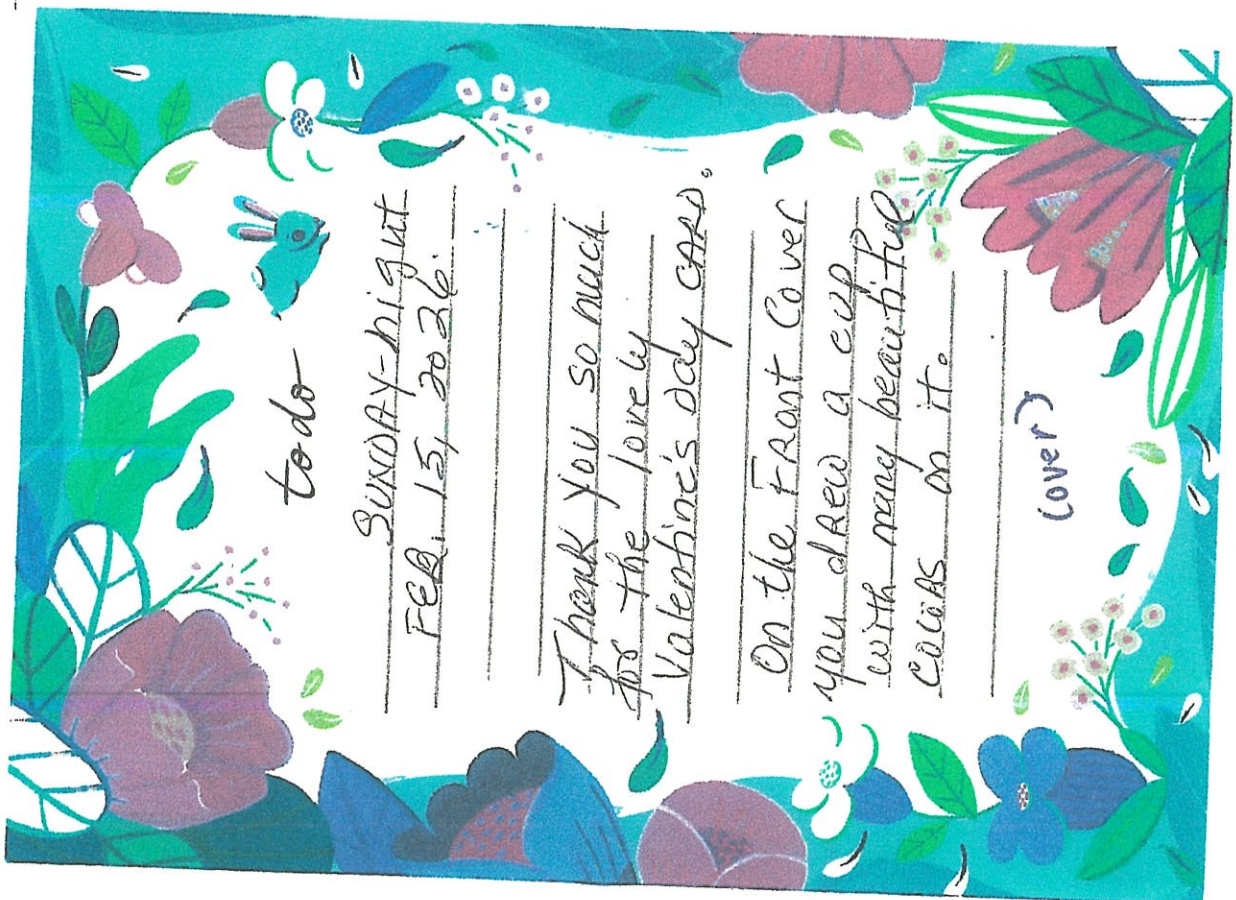 todo
SUNDAY-night
FEB. 15, 2026.
Thank you so much
for the lovely
Valentine's day CARD.
On the FRont Cover
you dRew a cup
with many beautiful
on it.
(over)